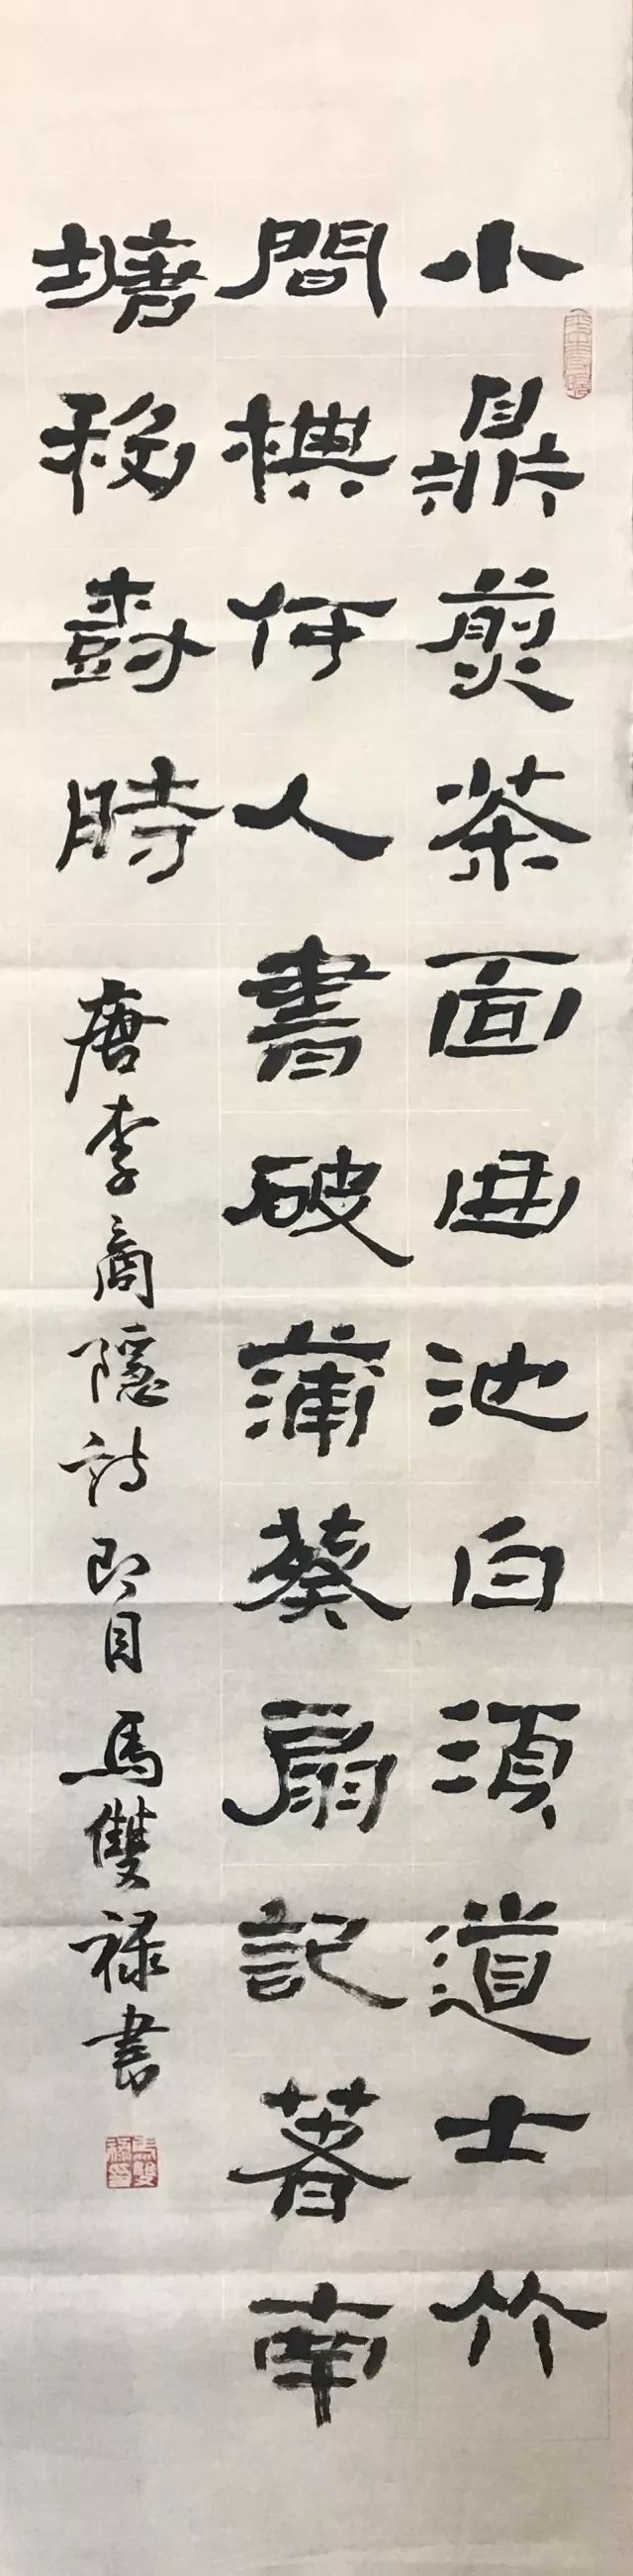 小鼎煎茶面曲池白須道士竹
間棋何人書破蒲葵扇記著南
塘移樹時 唐李商隱詩即目馬雙祿書